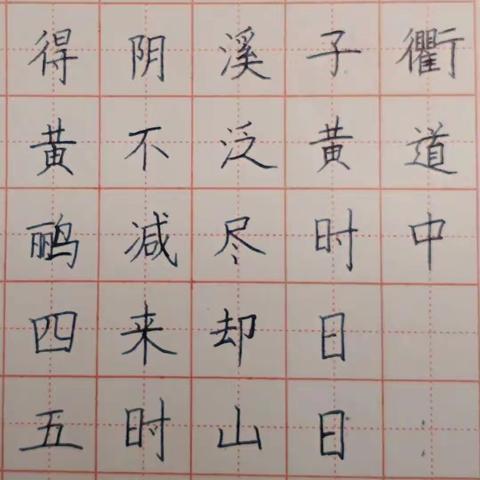 衢道中
子黄时日日
溪泛尽却山
阴不减来时
得黄鹂四五